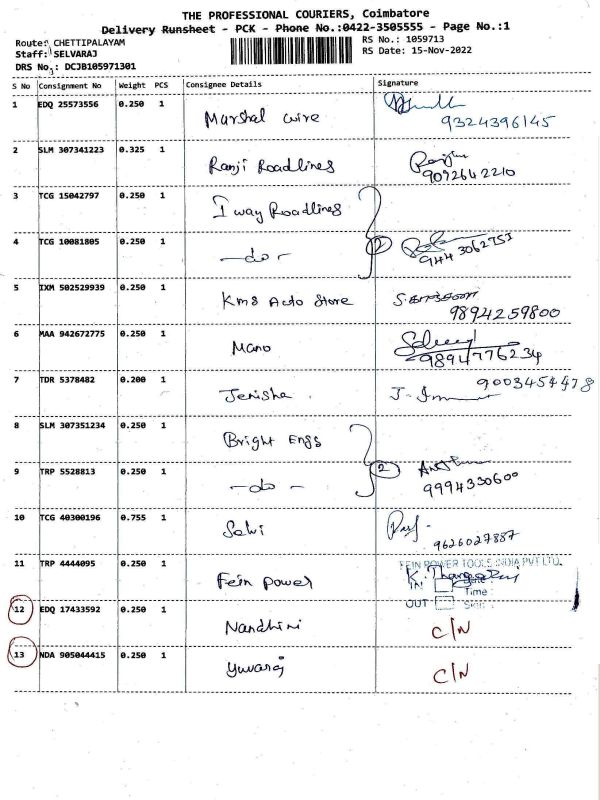 THE PROFESSIONAL COURIERS, Coimbatore
Delivery Runsheet - PCK - Phone No.:0422-3505555 - Page No.:1
Route: CHETTIPALAYAM RS No.: 1059713
Staff: SELVARAJ RS Date: 15-Nov-2022
DRS No.: DCJB105971301
S No Consignment No Weight PCS Consignee Details Signature
1 EDQ 25573556 0.250 1 Marshal wire
9324396145
2 SLM 307341223 0.325 1 Ranji Roadlines
9092642210
3 TCG 15042797 0.250 1 I way Roadlines
4 TCG 10081805 0.250 1 -do- 2
9443062753
5 IXM 502529939 0.250 1 Kms Auto Store
9894259800
6 MAA 942672775 0.250 1 Mano
9894776234
7 TDR 5378482 0.200 1 Jenisha. 9003454478
8 SLM 307351234 0.250 1 Bright Engs
9 TRP 5528813 0.250 1 -do- 2
9994330600
10 TCG 40300196 0.755 1 Selvi
9626027887
11 TRP 4444095 0.250 1 Fein power FEIN POWER TOOLS INDIA PVT LTD.
IN
Time :
OUT
12 EDQ 17433592 0.250 1 Nandhini C/N
13 NDA 905044415 0.250 1 Yuvaraj C/N